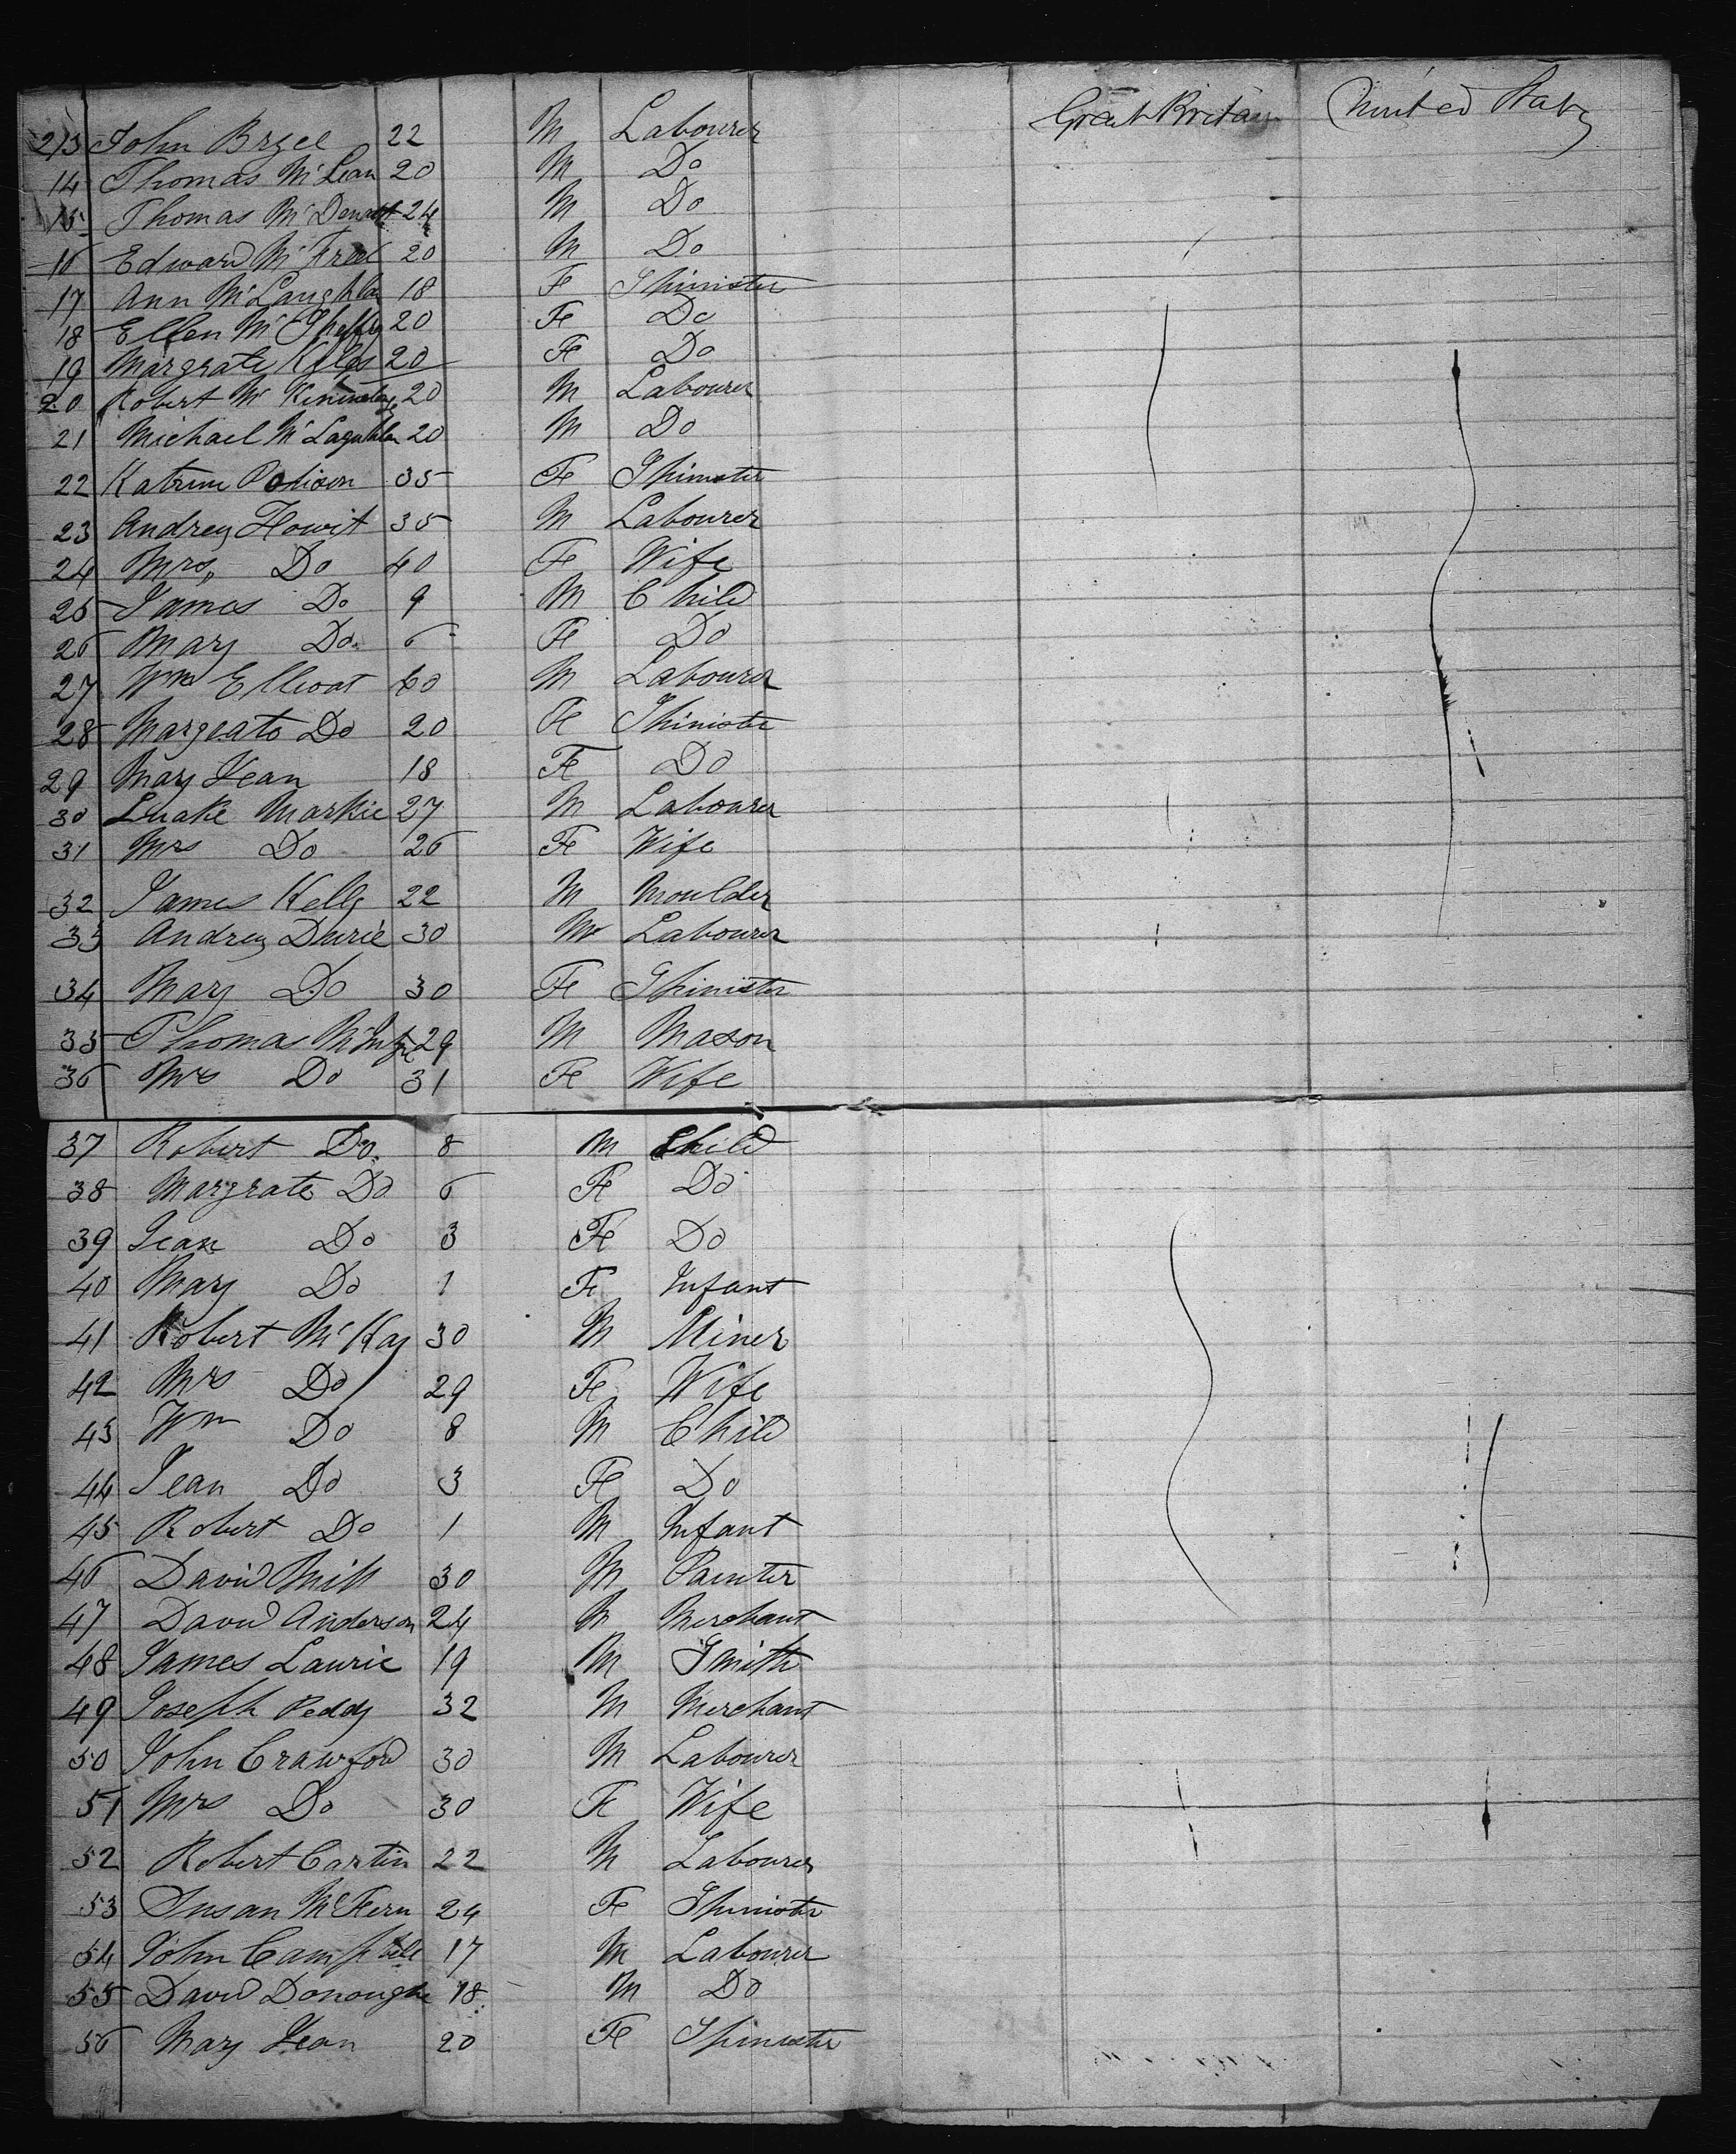 213 John Brzee 22 M Labourer Great Britain United States
14 Thomas McLean 20 M Do
15 Thomas McDonald 24 M Do
16 Edward McFred 20 M Do
17 Ann McLaughlan 18 F Spinister
18 Ellen 20 Fe Do
19 Margrate 20 Fe Do
20 Robert 20 M Labourer
21 Michael McLaguhlan 20 M Do
22 Katrine 35 Fe Spinster
23 Andrey Howit 35 M Labourer
24 Mrs Do 40 F Wife
25 James Do 9 M Child
26 Mary Do 6 Fe Do
27 Wm Ellioat 60 M Labourer
28 Margeate Do 20 Fe Spinister
29 Mary Jean 18 Fe Do
30 Luake Markie 27 M Labourer
31 Mrs Do 26 Fe Wife
32 James Kelly 22 M Moulder
33 Andrey Durie 30 M Labourer
34 Mary Do 30 Fe Spinister
35 Thomas McIntyre 29 M Mason
36 Mrs Do 31 Fe Wife
37 Robert Do 8 M Child
38 Margrate Do 6 Fe Do
39 Jean Do 3 Fe Do
40 Mary Do 1 Fe Infant
41 Robert McKay 30 M Miner
42 Mrs Do 29 Fe Wife
43 Wm Do 8 M Child
44 Jean Do 3 Fe Do
45 Robert Do 1 M Infant
46 David Mill 30 M Painter
47 David Anderson 24 M Merchant
48 James Laurie 19 M Smith
49 Joseph Peddy 32 M Merchant
50 John Crawford 30 M Labourer
51 Mrs Do 30 Fe Wife
52 Robert Cartin 22 M Labourer
53 Susan McFern 24 Fe Spinister
54 John Campbell 17 M Labourer
55 David Donoughe 18 M Do
56 Mary Jean 20 Fe Spinister